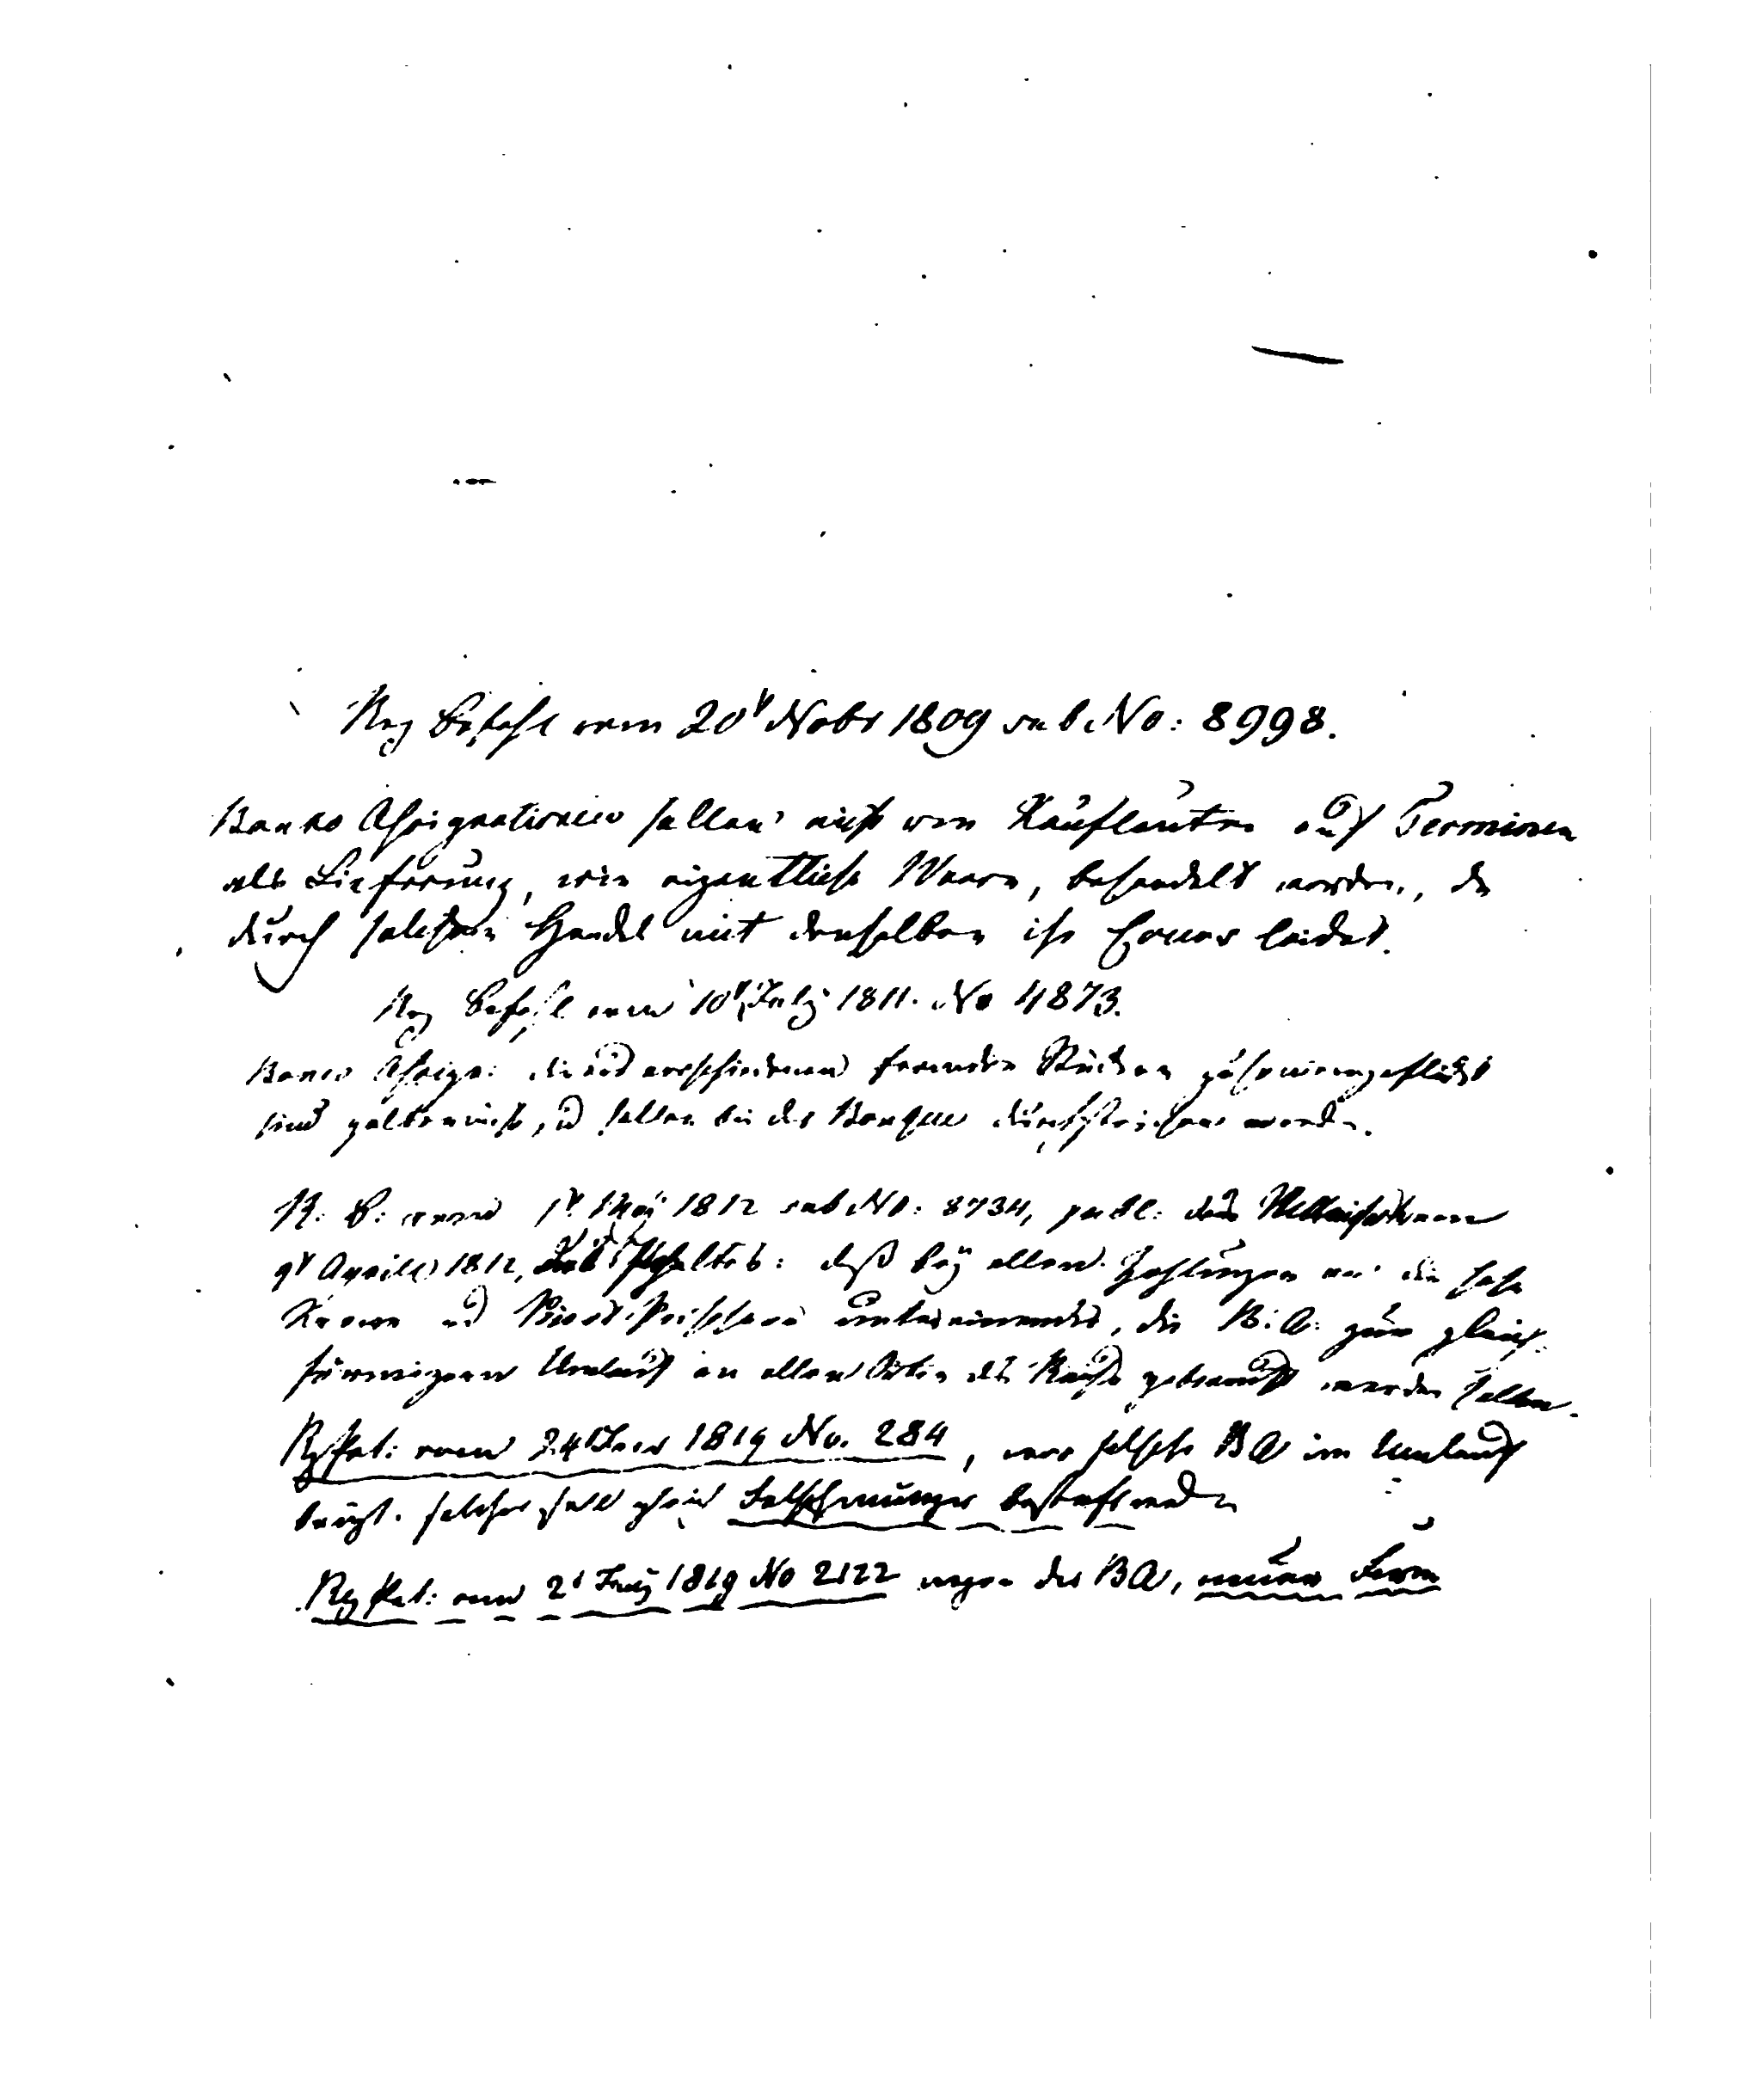 Reg Befehl vom 20t Nobr 1809 sub No: 8998.
Banco Assignationen sollen nicht von Kaufleuten auf Terminen
als Lieferung, wie eigentliche Waare, behandelt werden, da
durch solchen Handel mit denselben ihr Cours leidet.
Reg Befehl vom 10t July 1811. No 4873.
Banco Assign: die aus verschiedenen fremden Stücken zusammengeflickt
sind gelten nicht, u sollen bei der Banque durchstrichen werden.
R: B: vom 1t May 1812 sub No: 8734, publ: das
9t April 1812, Inhaltes: daß bey allen Zahlungen an die hohe
Krone und Privat-Personen untereinander, die B: A: zum gleich-
förmigen Umlauf an allen Orten des Reichs gebraucht werden sollen.
Rg Pat: vom 24t Janr 1819 No. 284, wer falsche BA in Umlauf
bringt, solcher soll gleich Falschmünzer bestraft werden
Rg Pat: vom 2t July 1819 No 2122 wegen der BA, neuer Form